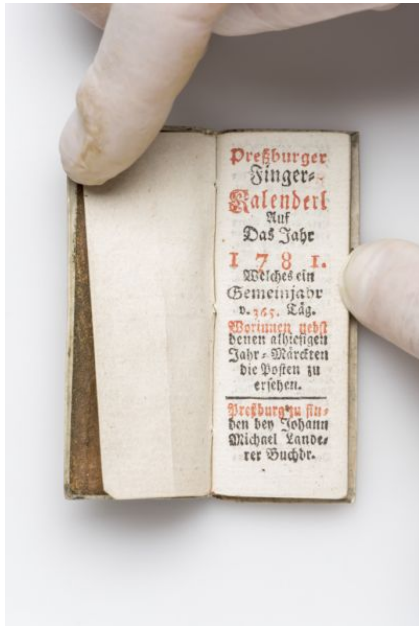 Preßburger
Finger-
Kalenderl
Auf
Das Jahr
1781.
Welches ein
Gemeinjahr
v. 365. Täg.
Worinnen nebst
denen alhiesigen
Jahr-Märckten
die Posten zu
ersehen.
Preßburg zu fin-
den bey Johann
Michael Lande-
rer Buchdr.